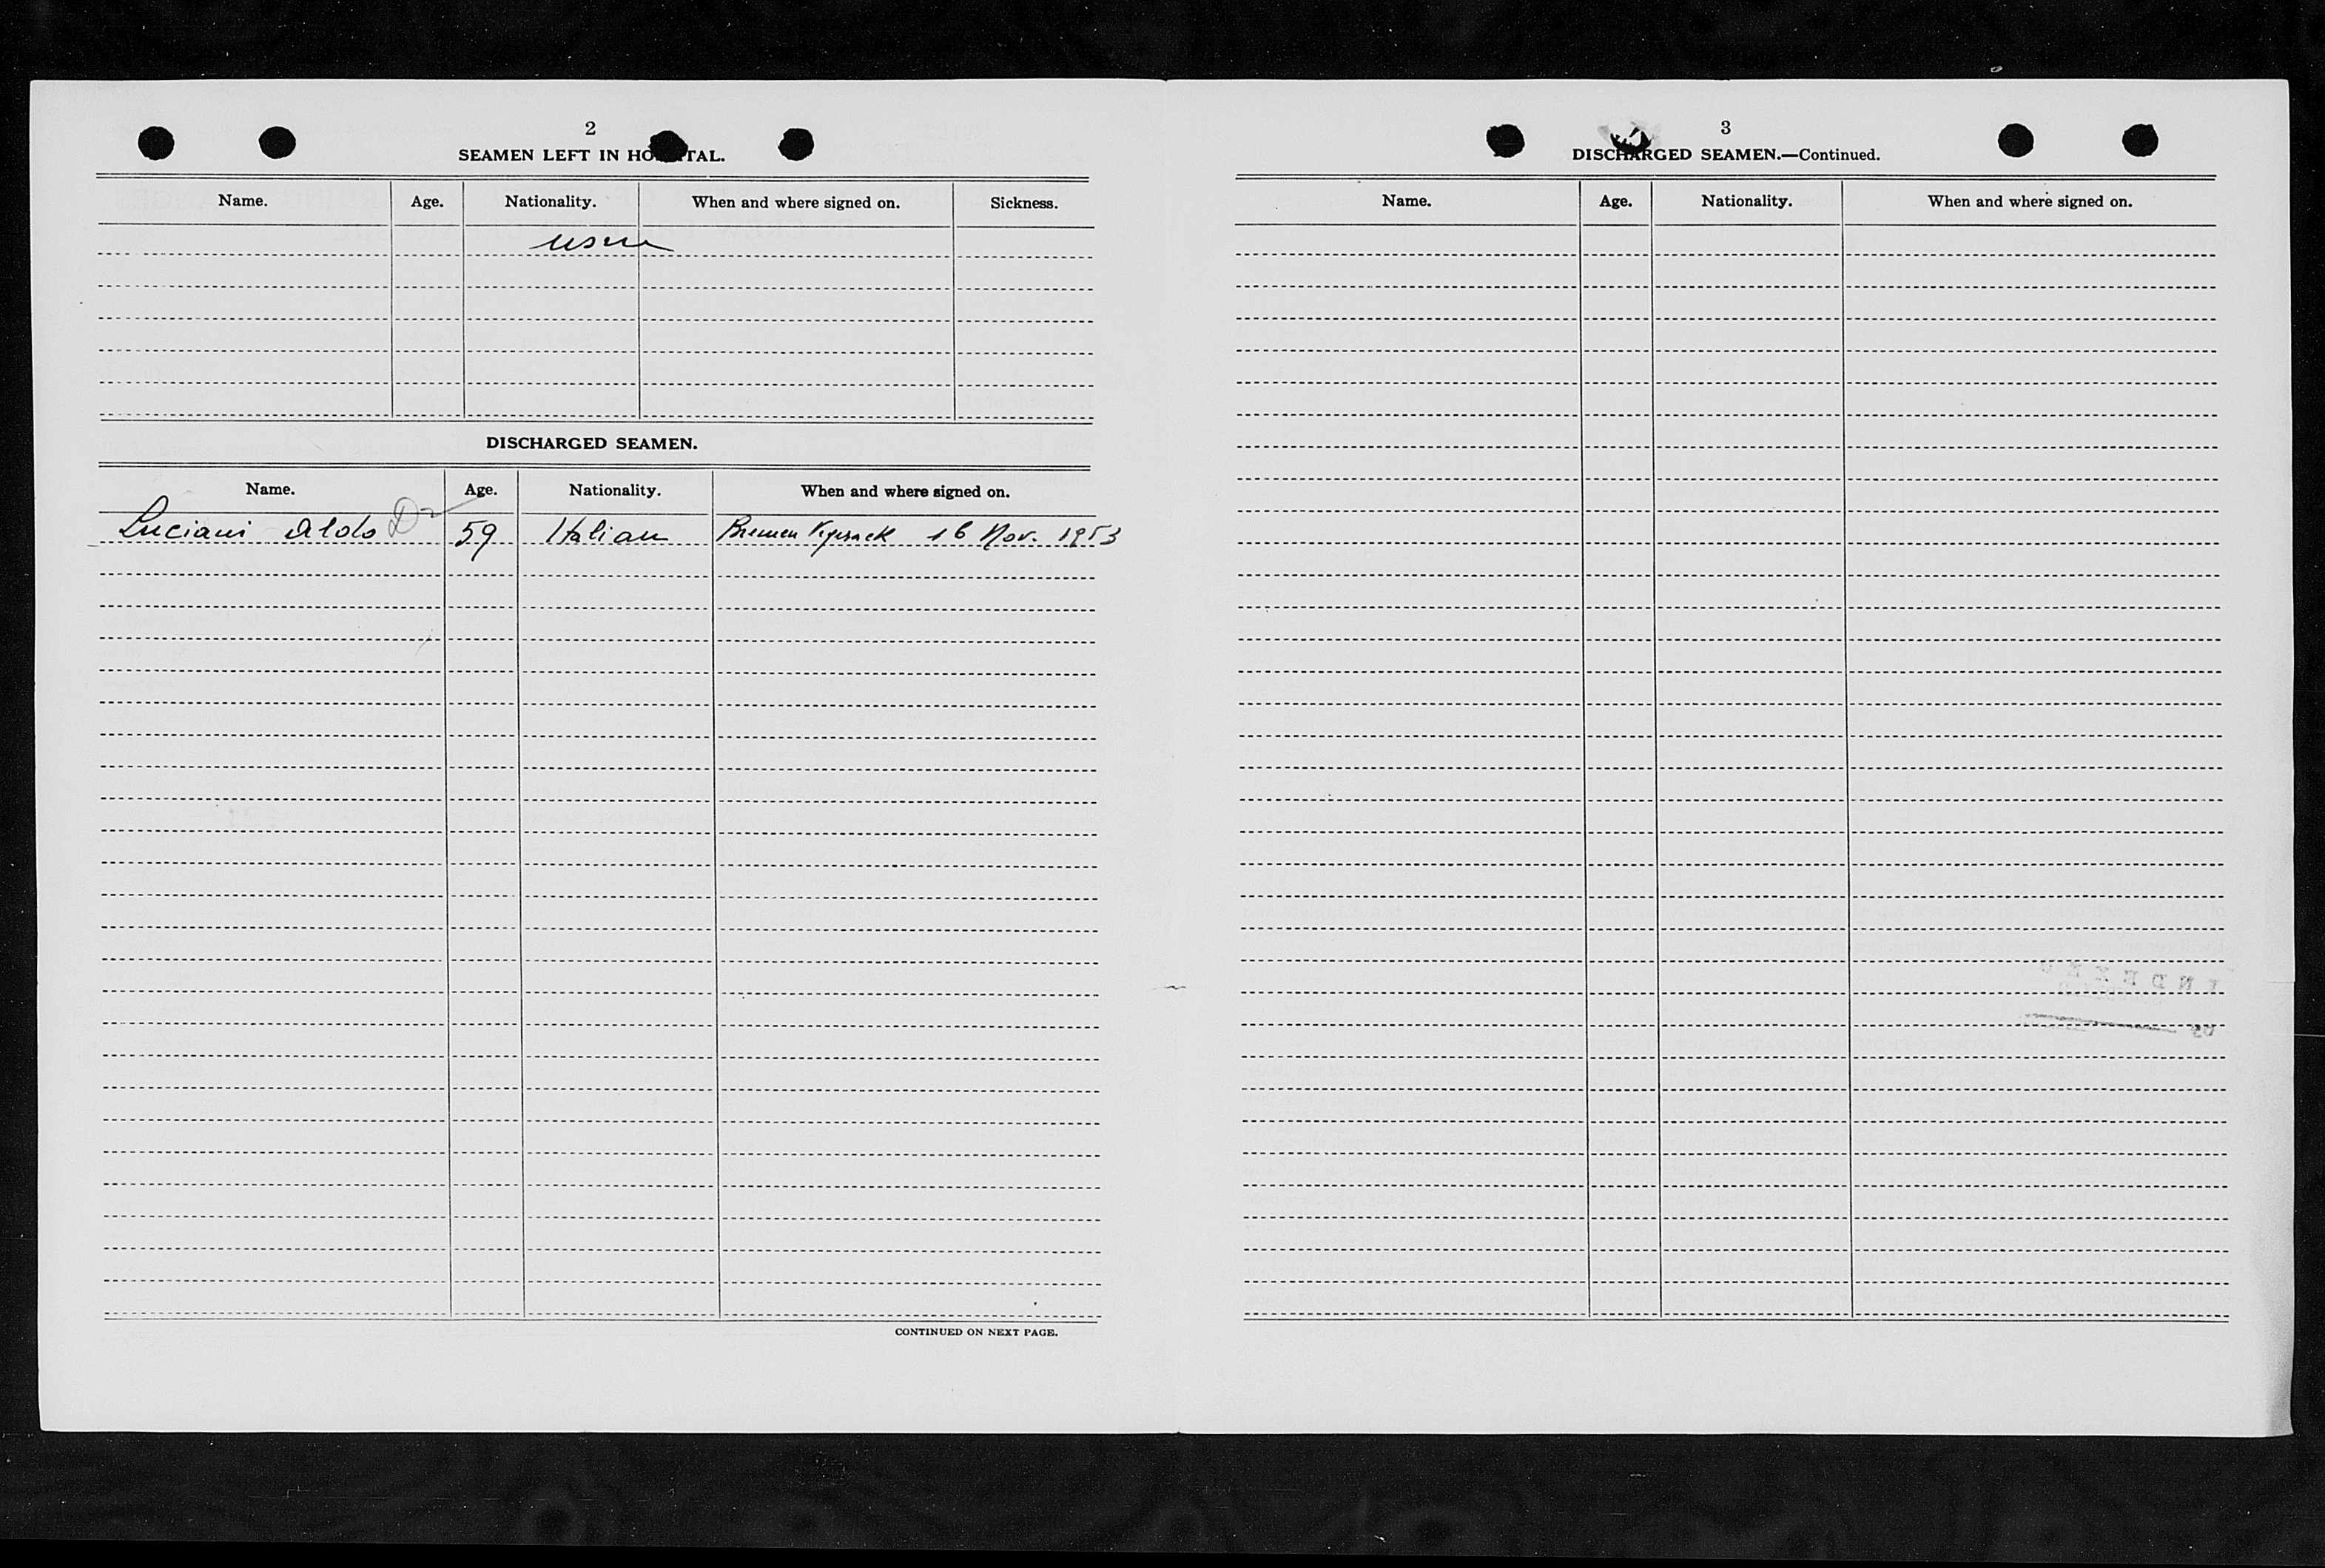 2
SEAMEN LEFT IN HOSPITAL.
Name. Age. Nationality. When and where signed on. Sickness.
DISCHARGED SEAMEN.
Name. Age. Nationality. When and where signed on.
Luciani Aldo 59 Italian Bremen Vegesack 16 Nov. 1953
CONTINUED ON NEXT PAGE.
3
DISCHARGED SEAMEN.—Continued.
Name. Age. Nationality. When and where signed on.